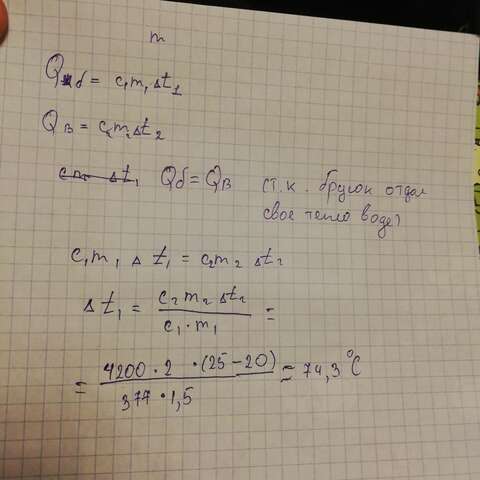 m
Qб = c₁m₁Δt₁
Qв = c₂m₂Δt₂
Qб = Qв (т.к. брусок отдал
свое тепло воде)
c₁m₁Δt₁ = c₂m₂Δt₂
Δt₁ = c₂m₂Δt₂ / c₁·m₁ =
= 4200·2·(25−20) / 377·1,5 ≈ 74,3°C